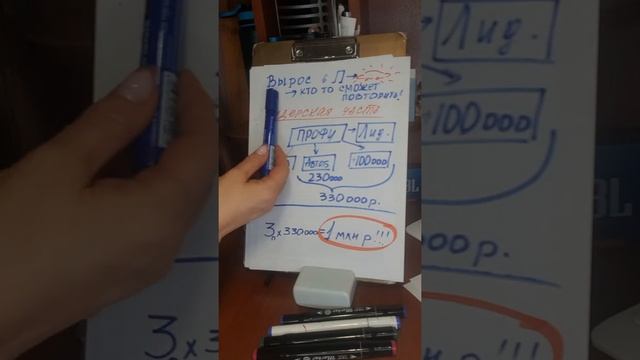 Вырос в Л →
→ кто то сможет
повторить!
дерская часть
Профи → Лид.
Автоб 100000
230000
330000р.
3л х 330000 = 1 млн р!!!